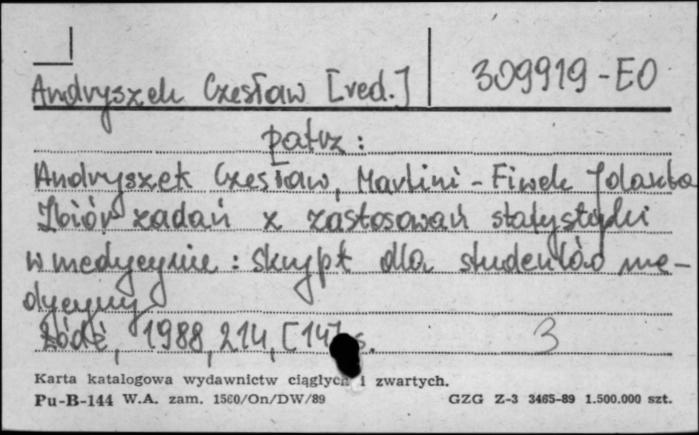 Andryszek Czesław [red.]
309919-EO
patrz:
Andryszek Czesław, Martini-Fiwek Jolanta
Zbiór zadań z zastosowań statystyki
w medycynie : skrypt dla studentów me-
dycyny
Łódź, 1988, 214, [14] s. 3
Karta katalogowa wydawnictw ciągłych i zwartych.
Pu-B-144 W.A. zam. 1560/On/DW/89 GZG Z-3 3465-89 1.500.000 szt.